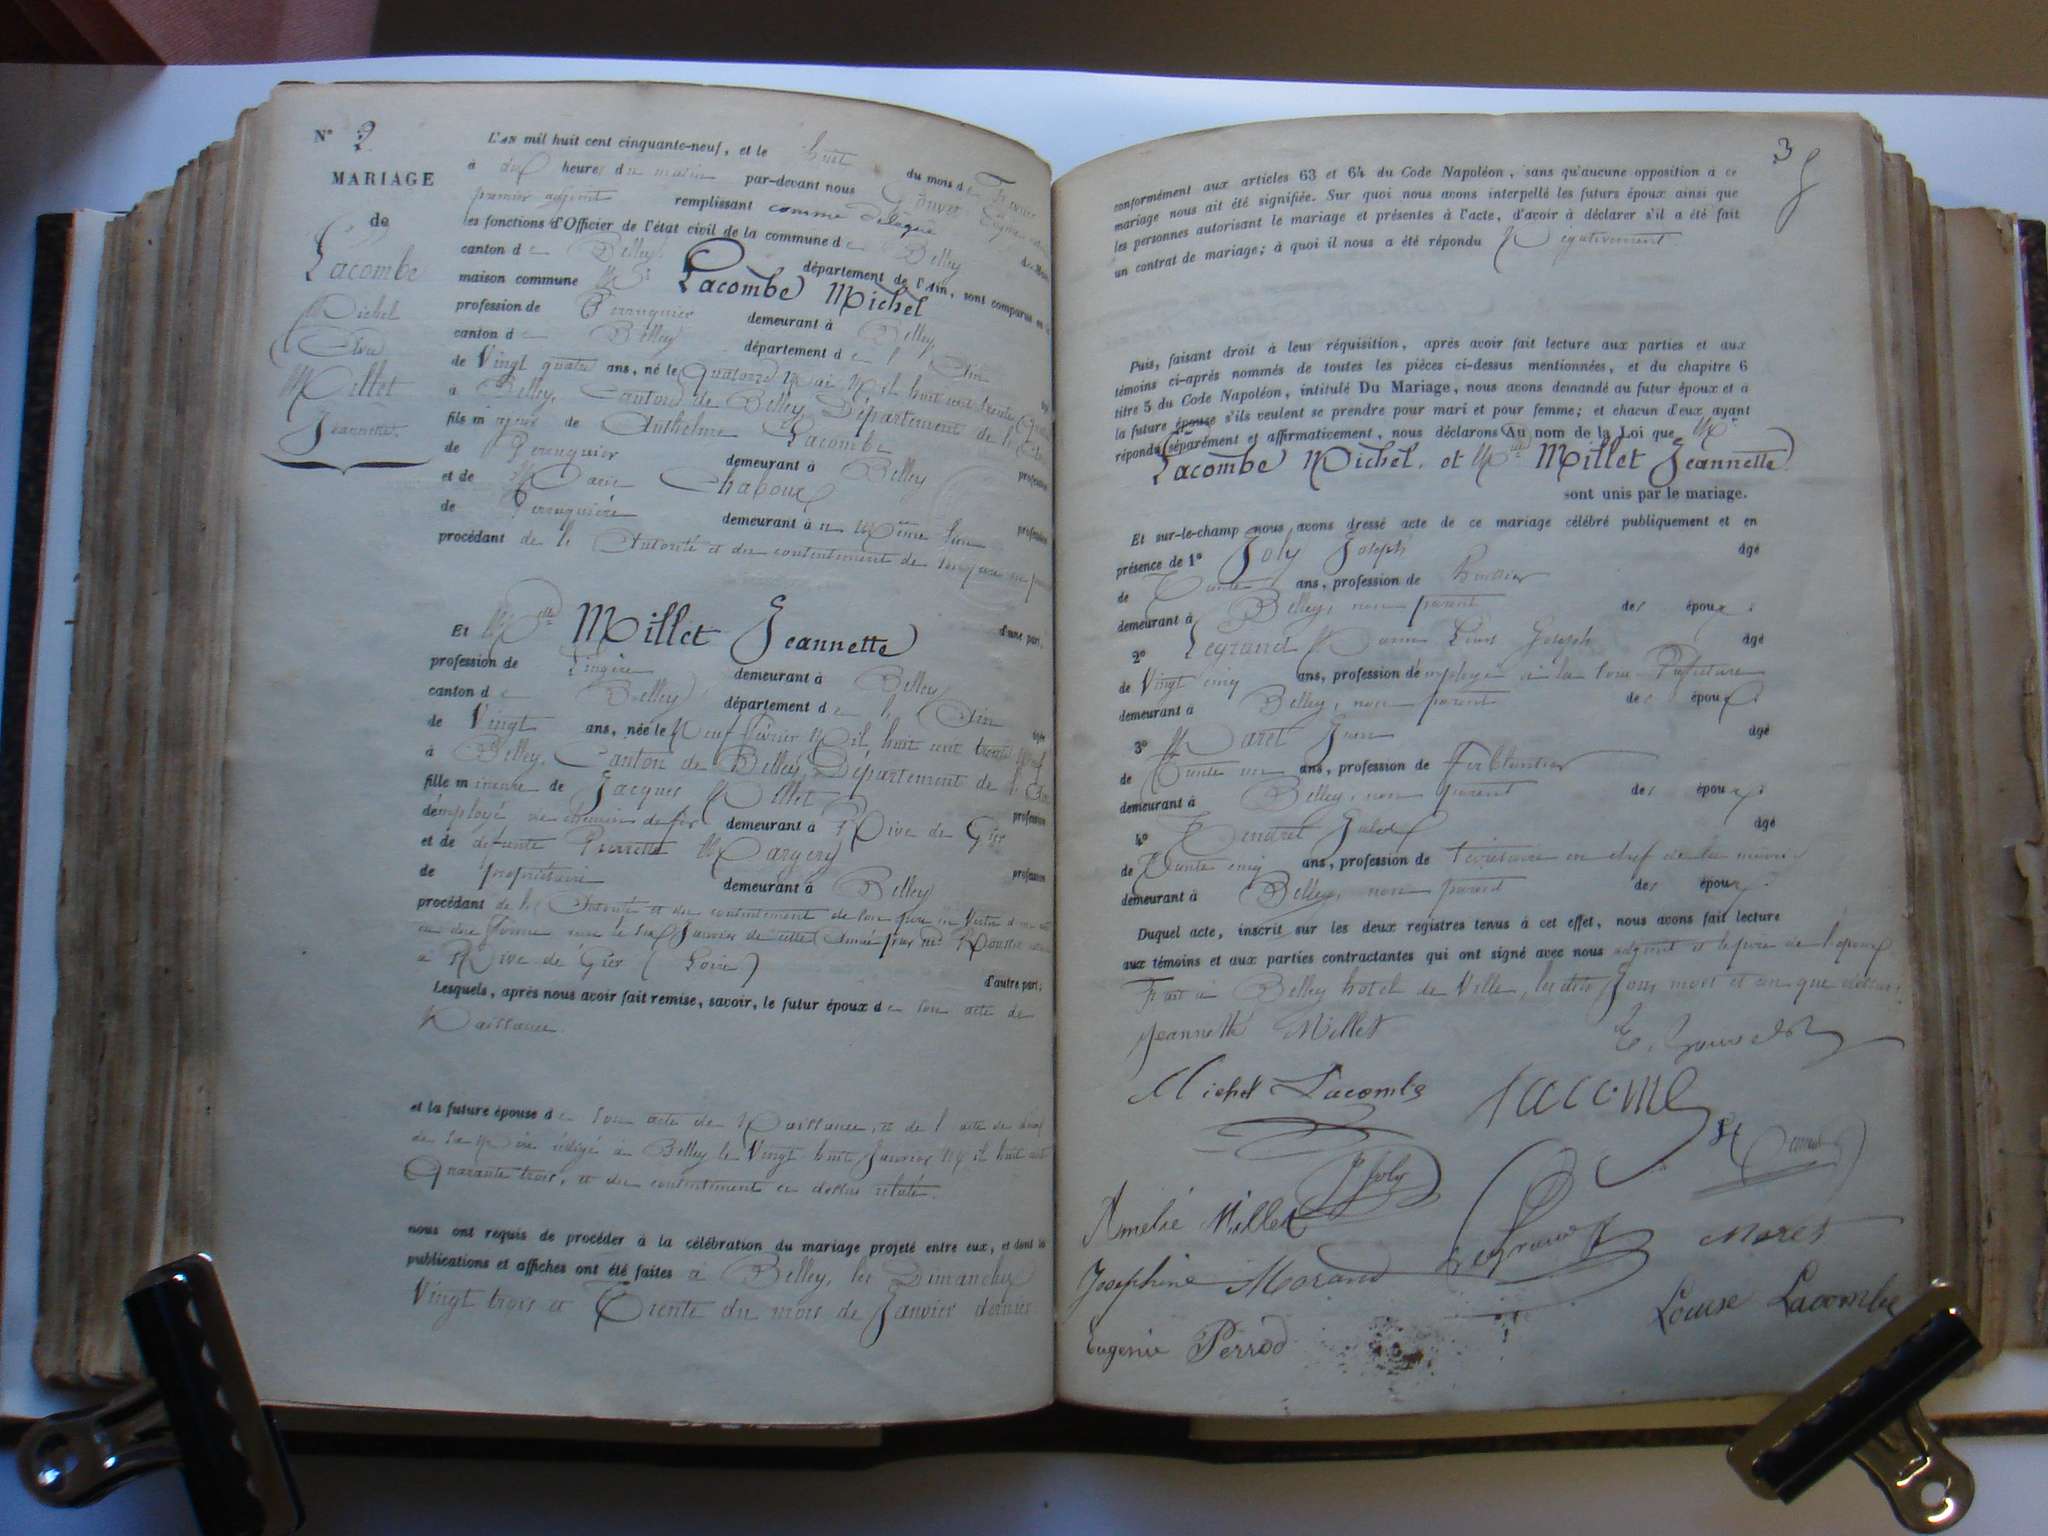 N° 2
MARIAGE
de
Lacombe
Michel
Avec
Millet
Jeannette.
L'AN mil huit cent cinquante-neuf, et le huit du mois de Février
à dix heures du matin par-devant nous
premier adjoint remplissant comme délégué
les fonctions d'Officier de l'état civil de la commune de Belley
canton de Belley département de l'Ain, sont comparus en la
maison commune Mr Lacombe Michel
profession de Perruquier demeurant à Belley,
canton de Belley département de l'Ain
de Vingt quatre ans, né le Quatorze Mai Mil huit cent trente
à Belley, Canton de Belley, Département de l'Ain
fils majeur de Anthelme Lacombe
de Perruquier demeurant à Belley profession
et de Marie Chaboux
de Perruquière demeurant à u même lieu profession
procédant de l'Autorité et du consentement de ses père et mère
d'une part,
Et Mlle Millet Jeannette
profession de Lingère demeurant à Belley
canton de Belley département de l'Ain
de Vingt ans, née le Neuf février Mil huit cent trente neuf
à Belley, Canton de Belley, Département de l'Ain
fille mineure de Jacques Millet
d'employé au chemin de fer demeurant à Rive de Gier profession
et de défunte Pierrette Margery
de propriétaire demeurant à Belley profession
procédant de l'Autorité et du consentement de son père en vertu d'un acte
en due forme reçu le six Janvier de cette année par me
à Rive de Gier (Loire)
d'autre part;
Lesquels, après nous avoir fait remise, savoir, le futur époux de son acte de
Naissance
et la future épouse de son acte de Naissance, et de l'acte de décès
de sa Mère rédigé à Belley le Vingt huit Janvier Mil huit cent
Quarante trois, et du consentement ci dessus relaté.
nous ont requis de procéder à la célébration du mariage projeté entre eux, et dont les
publications et affiches ont été faites à Belley, les Dimanches
Vingt trois et Trente du mois de Janvier dernier
3
conformément aux articles 63 et 64 du Code Napoléon, sans qu'aucune opposition à ce
mariage nous ait été signifiée. Sur quoi nous avons interpellé les futurs époux ainsi que
les personnes autorisant le mariage et présentes à l'acte, d'avoir à déclarer s'il a été fait
un contrat de mariage; à quoi il nous a été répondu Négativement
Puis, faisant droit à leur réquisition, après avoir fait lecture aux parties et aux
témoins ci-après nommés de toutes les pièces ci-dessus mentionnées, et du chapitre 6
titre 5 du Code Napoléon, intitulé Du Mariage, nous avons demandé au futur époux et à
la future épouse s'ils veulent se prendre pour mari et pour femme; et chacun d'eux ayant
répondu séparément et affirmativement, nous déclarons Au nom de la Loi que Mr
Lacombe Michel, et Mlle Millet Jeannette
sont unis par le mariage.
Et sur-le-champ nous avons dressé acte de ce mariage célébré publiquement et en
présence de 1° Joly Joseph âgé
de Trente ans, profession de
demeurant à Belley, non parent des époux.
2° Legrand Marie Louis Joseph âgé
de Vingt cinq ans, profession d'employé à la Sous Préfecture
demeurant à Belley, non parent des époux.
3° Maret âgé
de Trente un ans, profession de Ferblantier
demeurant à Belley, non parent des époux.
4° âgé
de Trente cinq ans, profession de Secrétaire en chef de la mairie
demeurant à Belley, non parent des époux.
Duquel acte, inscrit sur les deux registres tenus à cet effet, nous avons fait lecture
aux témoins et aux parties contractantes qui ont signé avec nous adjoint et le père de l'époux
Fait à Belley hotel de Ville, les dits Jour mois et an que dessus.
Jeannette Millet
Michel Lacombe Lacombe
J Joly
Amelie Millet Legrand Maret
Josephine Morand
Louise Lacombe
Eugenie Perrod